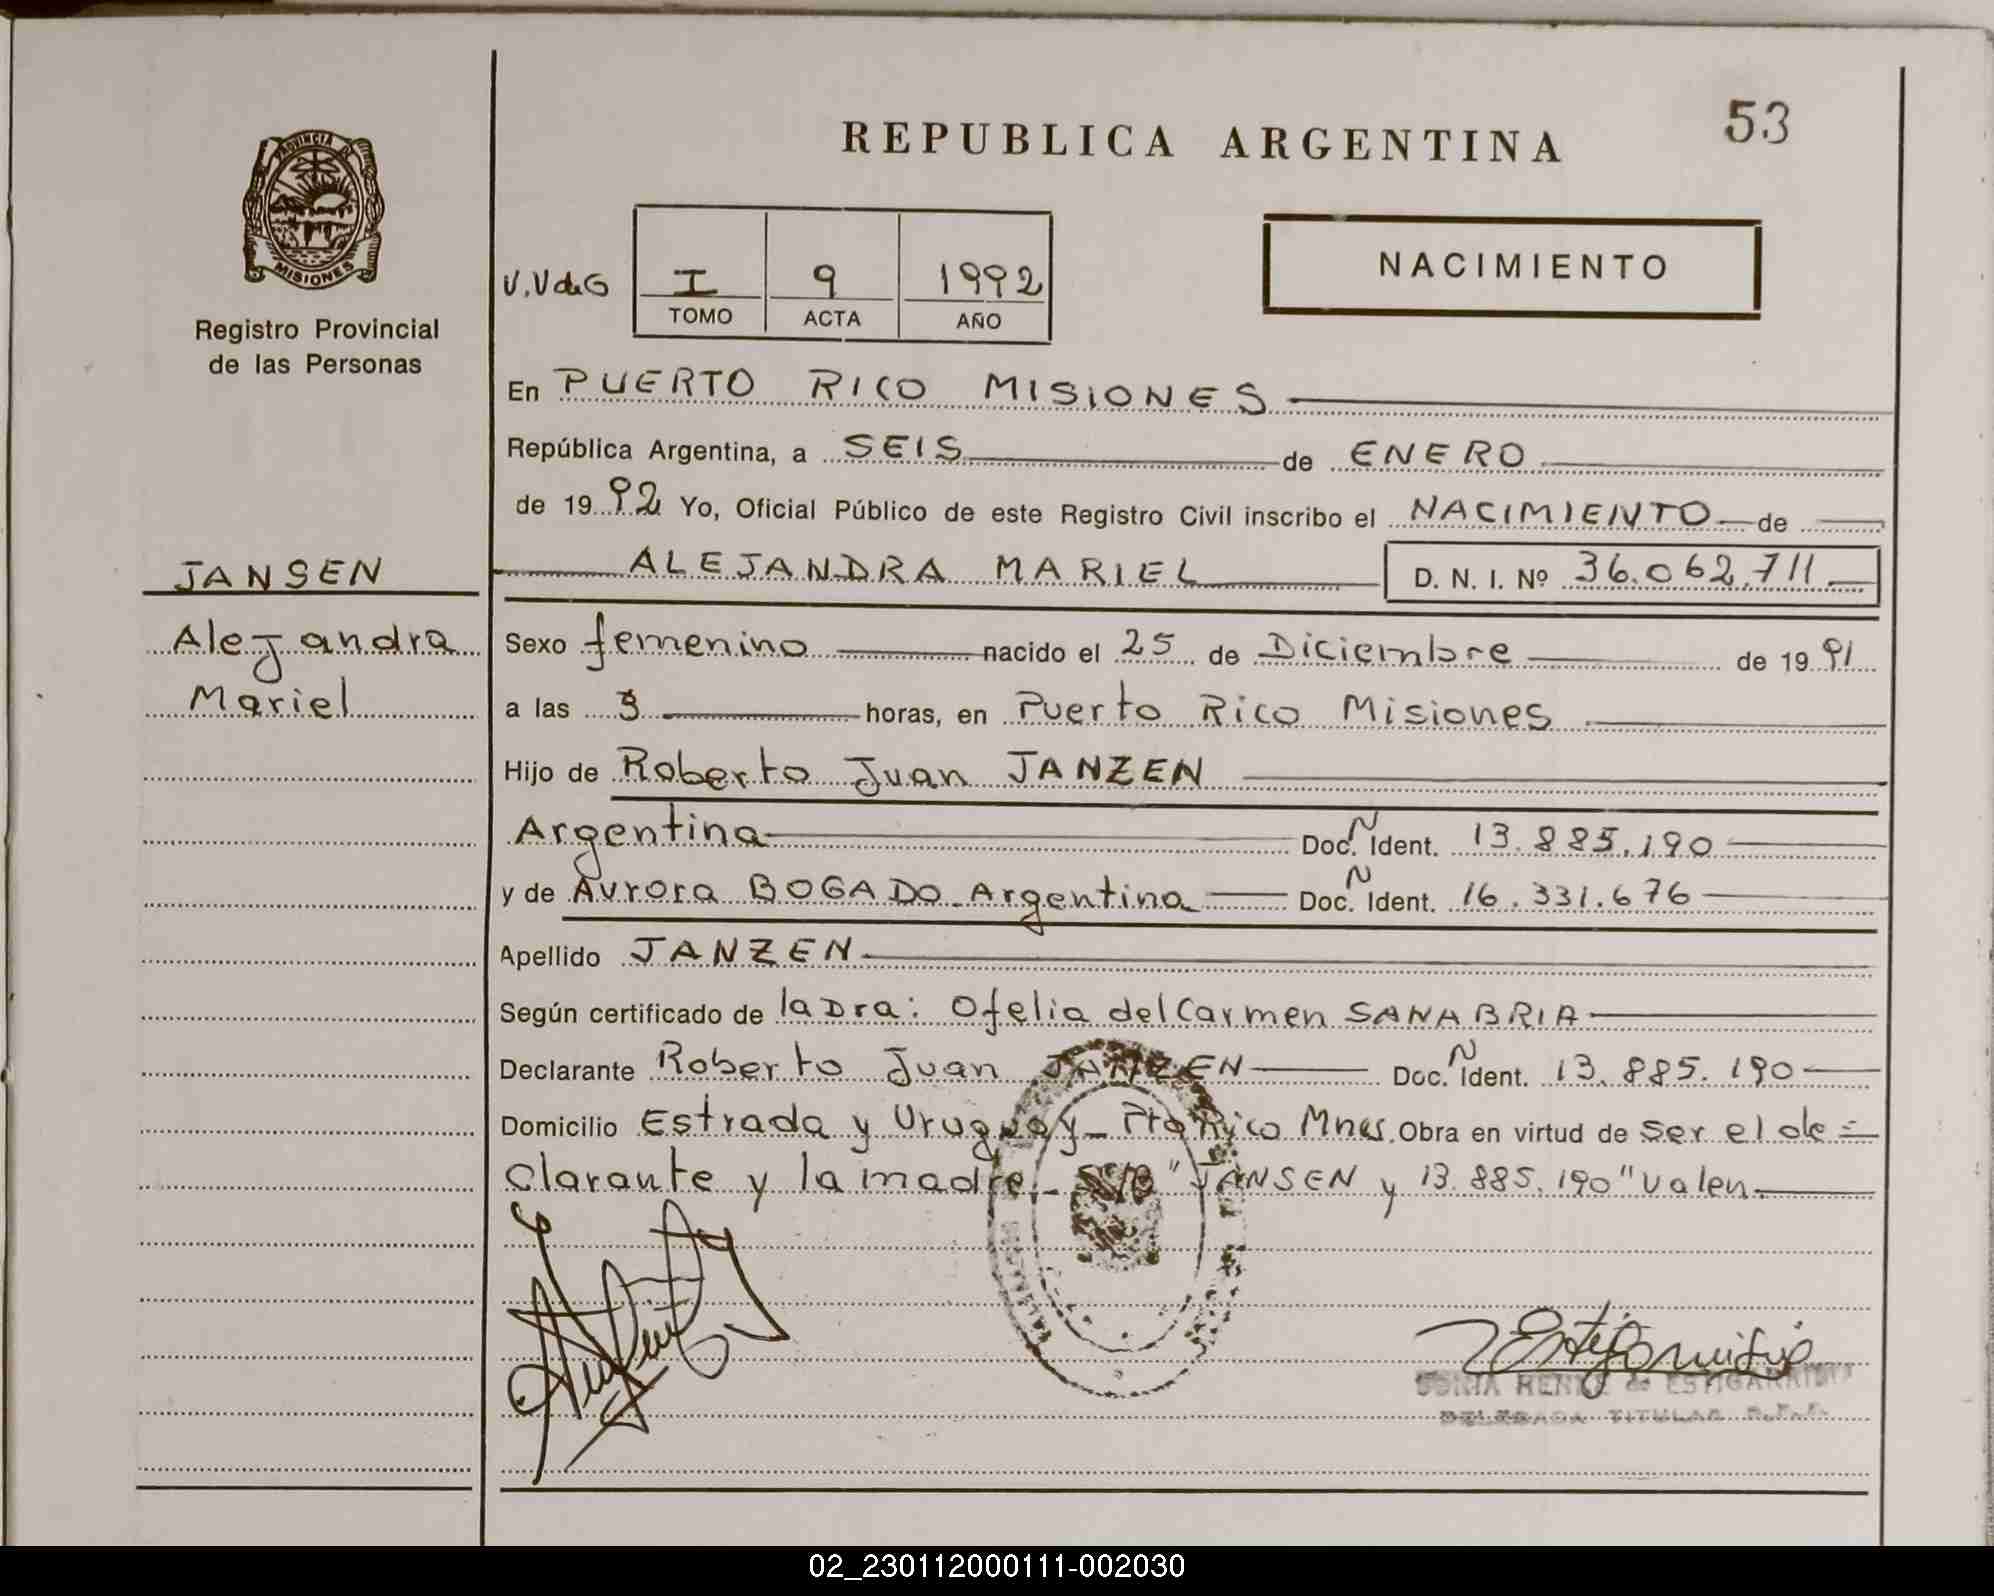 53
REPUBLICA ARGENTINA
PROVINCIA DE
MISIONES
Registro Provincial
de las Personas
NACIMIENTO
V.VdeG I 9 1992
TOMO ACTA AÑO
En PUERTO RICO MISIONES
República Argentina, a SEIS de ENERO
de 19 92 Yo, Oficial Público de este Registro Civil inscribo el NACIMIENTO de
JANSEN
ALEJANDRA MARIEL D. N. I. Nº 36.062.711
Alejandra
Mariel
Sexo femenino nacido el 25 de Diciembre de 19 91
a las 3 horas, en Puerto Rico Misiones
Hijo de Roberto Juan JANZEN
Argentina Doc. N Ident. 13.885.190
y de Aurora BOGADO Argentina Doc. N Ident. 16.331.676
Apellido JANZEN
Según certificado de la Dra: Ofelia del Carmen SANABRIA
Declarante Roberto Juan JANZEN Doc. N Ident. 13.885.190
Domicilio Estrada y Uruguay - Pto Rico Mnes. Obra en virtud de ser el de=
clarante y la madre.- S/B "JANSEN y 13.885.190" Valen
DELEGADA TITULAR
02_230112000111-002030